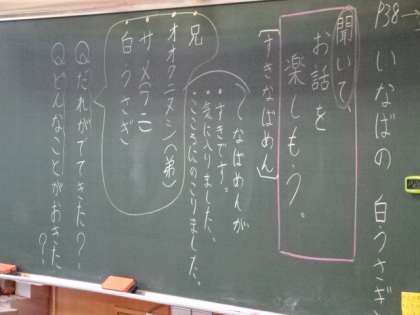 P38→
いなばの 白うさぎ
聞いて、
お話を
楽しもう。
[すきなばめん]
〜なばめんが
・すきです。
・気に入りました。
・こころにのこりました。
・兄
・オオクニヌシ(弟)
・サメ(ワニ)
・白うさぎ
Qだれがでてきた?
Qどんなことがおきた?